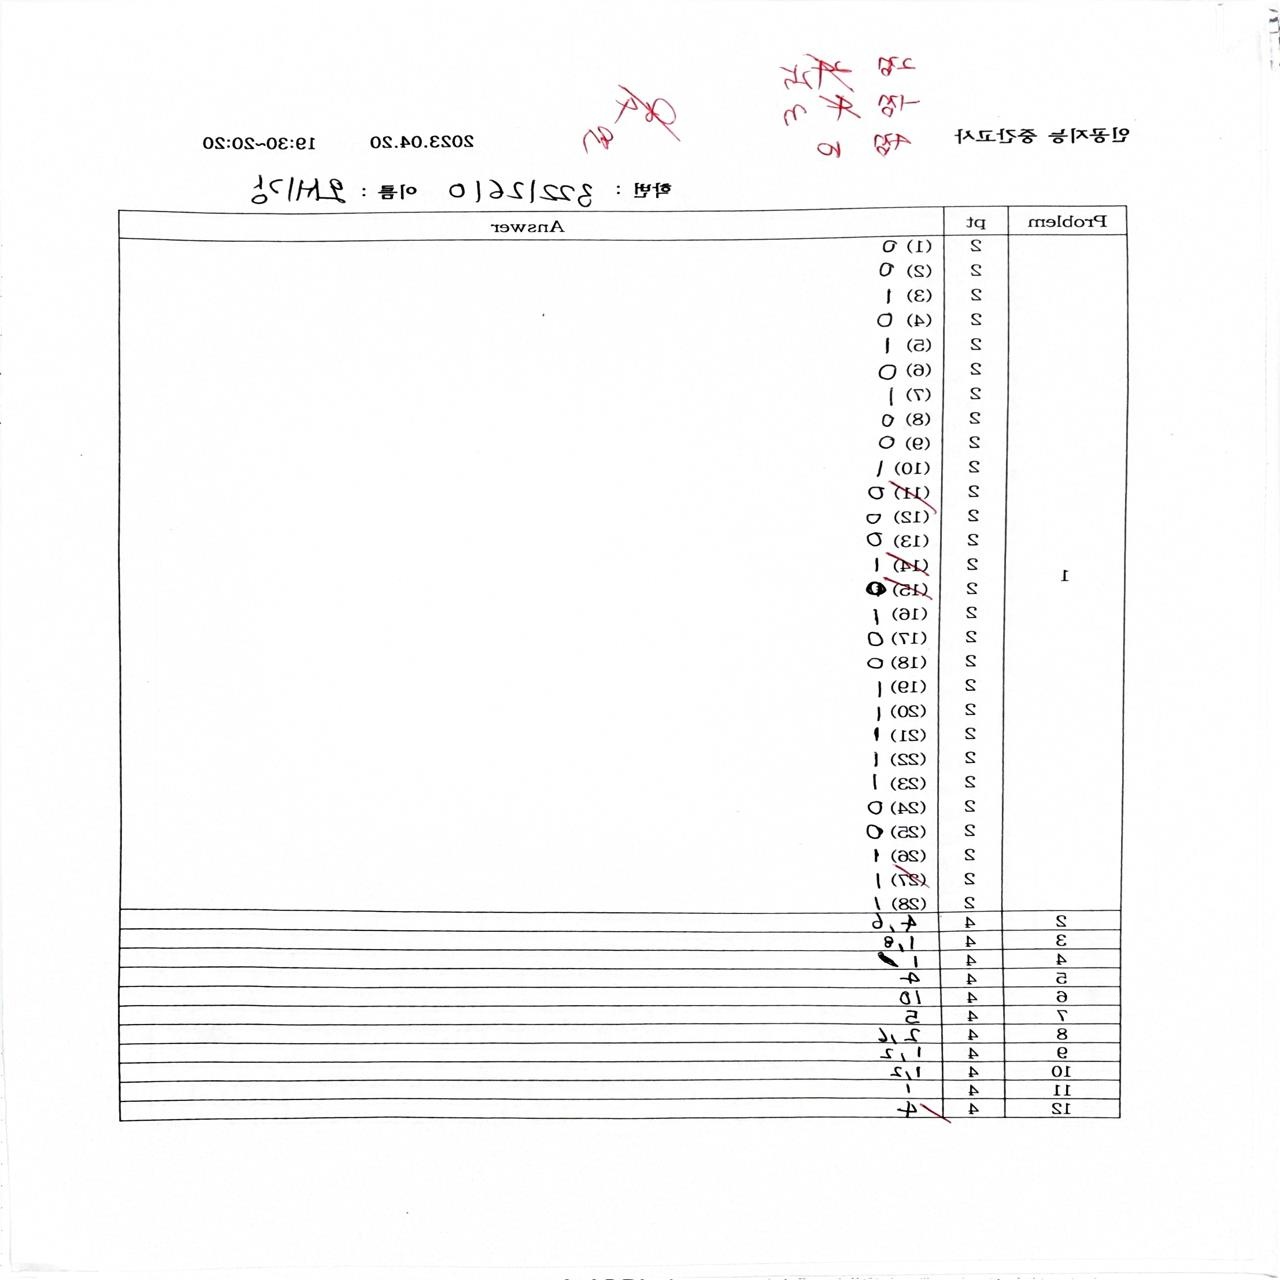 2점
1점 3
4점
인공지능 중간고사 2023.04.20 19:30~20:20
학번 : 32212610 이름 :
Problem pt Answer
2 (1) 0
2 (2) 0
2 (3) 1
2 (4) 0
2 (5) 1
2 (6) 0
2 (7) 1
2 (8) 0
2 (9) 0
2 (10) 1
2 (11) 0
2 (12) 0
2 (13) 0
2 (14) 1
1 2 (15) 0
2 (16) 1
2 (17) 0
2 (18) 0
2 (19) 1
2 (20) 1
2 (21) 1
2 (22) 1
2 (23) 1
2 (24) 0
2 (25) 0
2 (26) 1
2 (27) 1
2 (28) 1
2 4 4,6
3 4 1,8
4 4 1
5 4 4
6 4 10
7 4 5
8 4 2,6
9 4 1,2
10 4 1,2
11 4 1
12 4 4